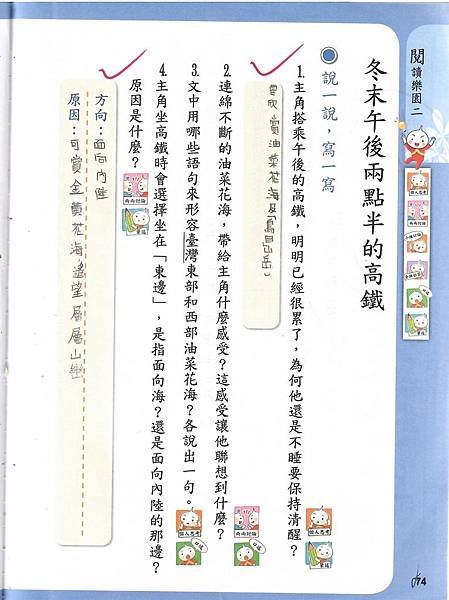 閱讀樂園二
冬末午後兩點半的高鐵
說一說，寫一寫
1.主角搭乘午後的高鐵，明明已經很累了，為何他還是不睡要保持清醒？
要欣賞油菜花海及「烏魯山岳」
2.連綿不斷的油菜花海，帶給主角什麼感受？這感受讓他聯想到什麼？
3.文中用哪些語句來形容臺灣東部和西部油菜花海？各說出一句。
4.主角坐高鐵時會選擇坐在「東邊」，是指面向海？還是面向內陸的那邊？
原因是什麼？
方向：面向內陸
原因：可賞金黃花海，遙望層層山巒
174